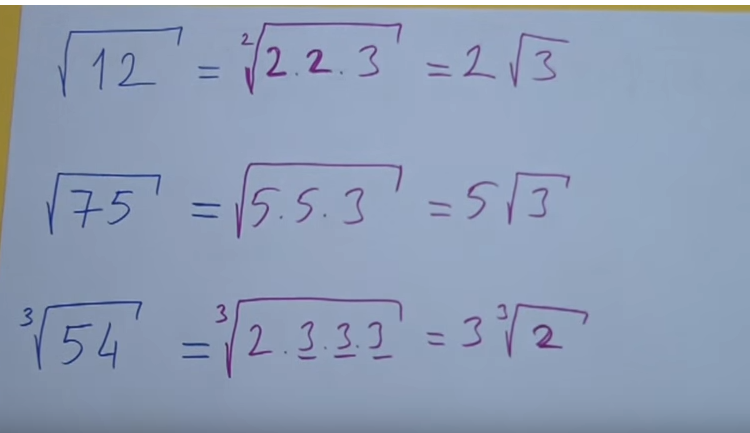 √12 = ²√2.2.3 = 2√3
√75 = √5.5.3 = 5√3
³√54 = ³√2.3.3.3 = 3³√2